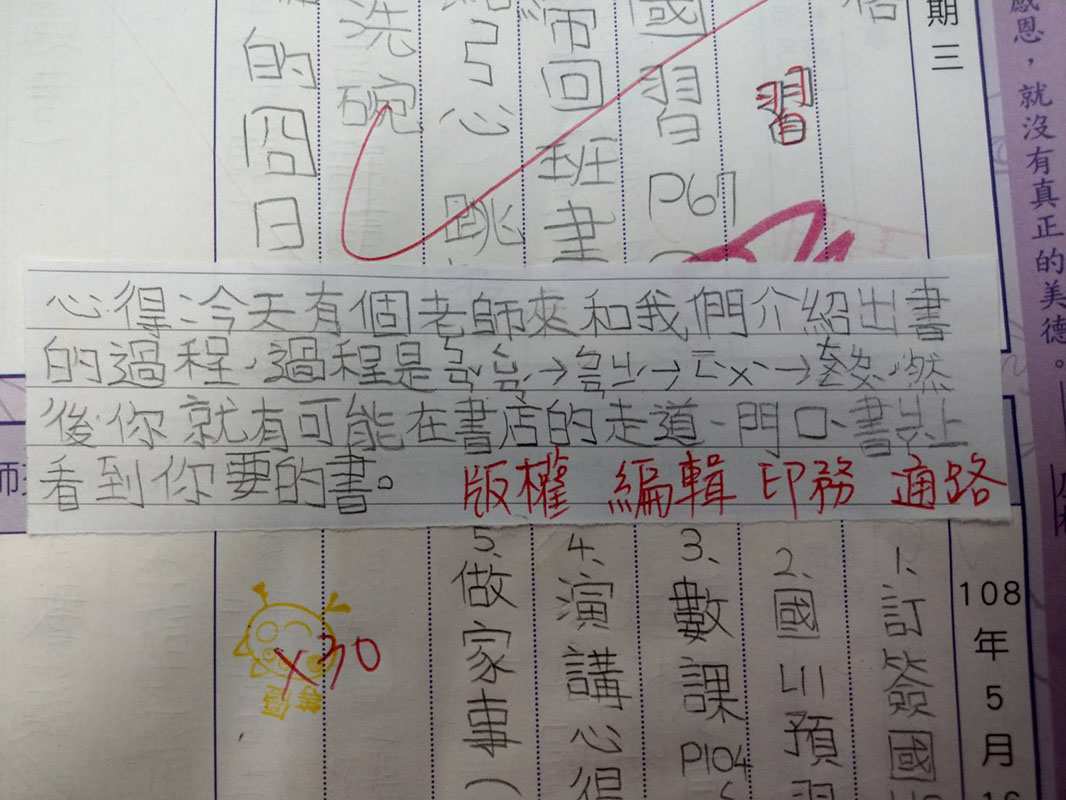 感恩，就沒有真正的美德。
期三
習
國習P67
師回班書
心 跳
洗碗
的囧日
心得:今天有個老師來和我們介紹出書
的過程,過程是
後,你就有可能在書店的走道、門口、書
看到你要的書。
版權 編輯 印務 通路
108年5月16
1.訂簽國
2.國 預習
3.數課P104
4.演講心得
5.做家事(
x30